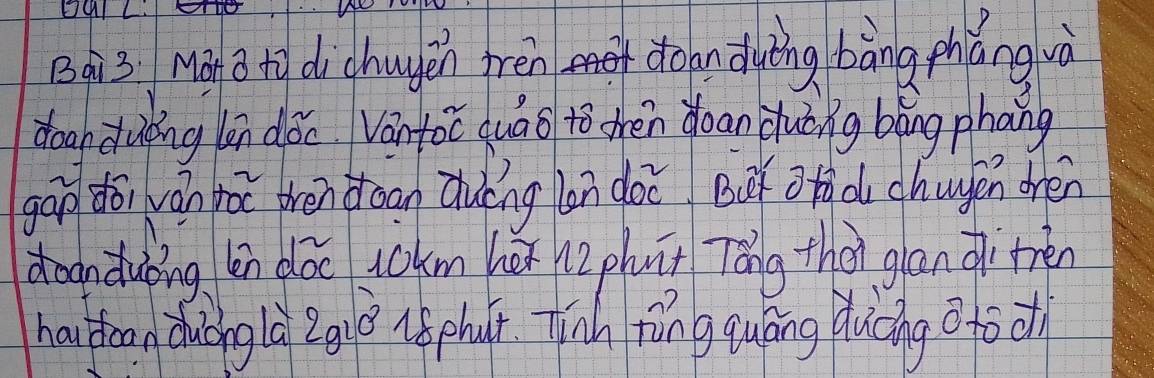 Bài 3: Một ô tô di chuyển trên đoạn đường bằng phẳng và
đoạn đường lên dốc. Vận tốc của ô tô trên đoạn đường bằng phẳng
gấp đôi vận tốc trên đoạn đường lên dốc. Biết ô tô di chuyển trên
đoạn đường lên dốc 10km hết 12 phút. Tổng thời gian đi trên
hai đoạn đường là 2 giờ 18 phút. Tính tổng quãng đường ô tô đi